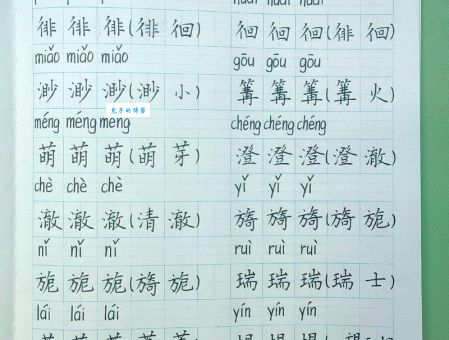 徘 徘 徘(徘 徊) 徊 徊 徊(徘 徊)
miǎo miǎo miǎo gōu gōu gōu
渺 渺 渺(渺 小) 篝 篝 篝(篝 火)
包子的博客
méng méng méng chéng chéng chéng
萌 萌 萌(萌 芽) 澄 澄 澄(澄 澈)
chè chè chè yǐ yǐ yǐ
澈 澈 澈(清 澈) 旖 旖 旖(旖 旎)
nǐ nǐ nǐ ruì ruì ruì
旎 旎 旎(旖 旎) 瑞 瑞 瑞(瑞 士)
lái lái lái yín yín yín